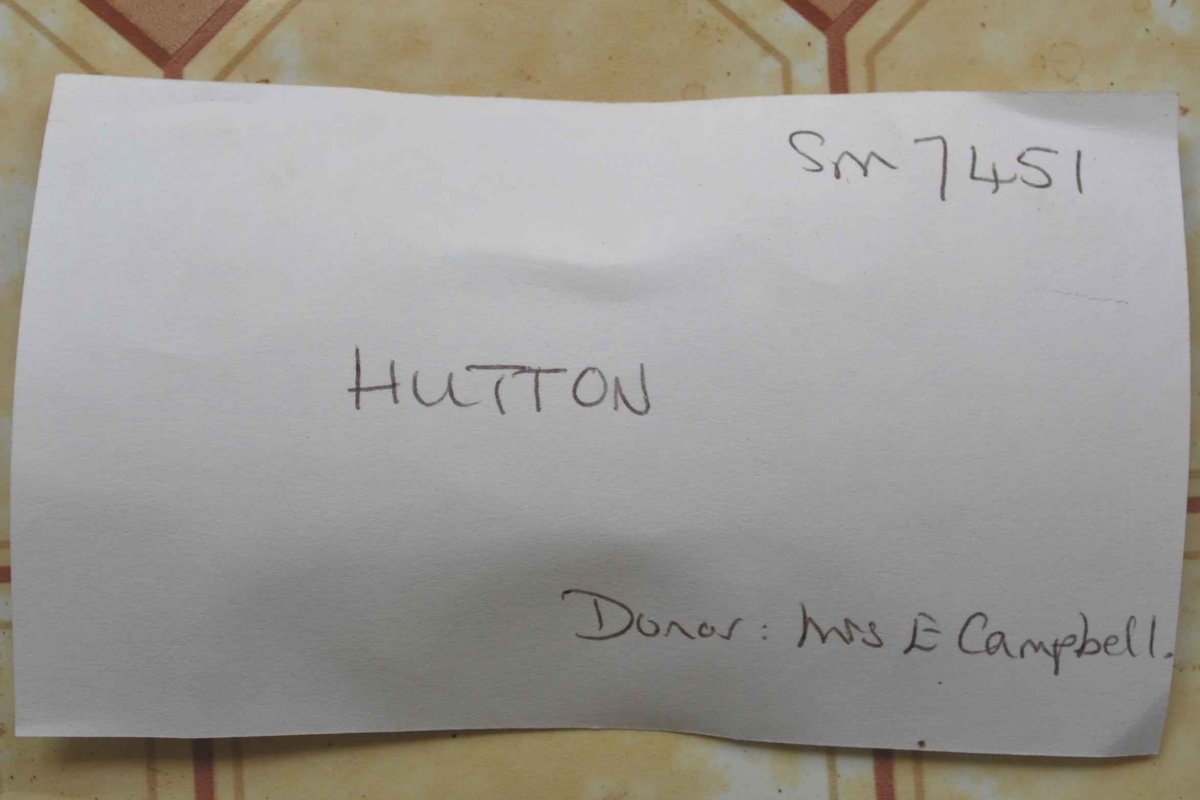 Sm 7451
HUTTON
Donor: Mrs E Campbell.